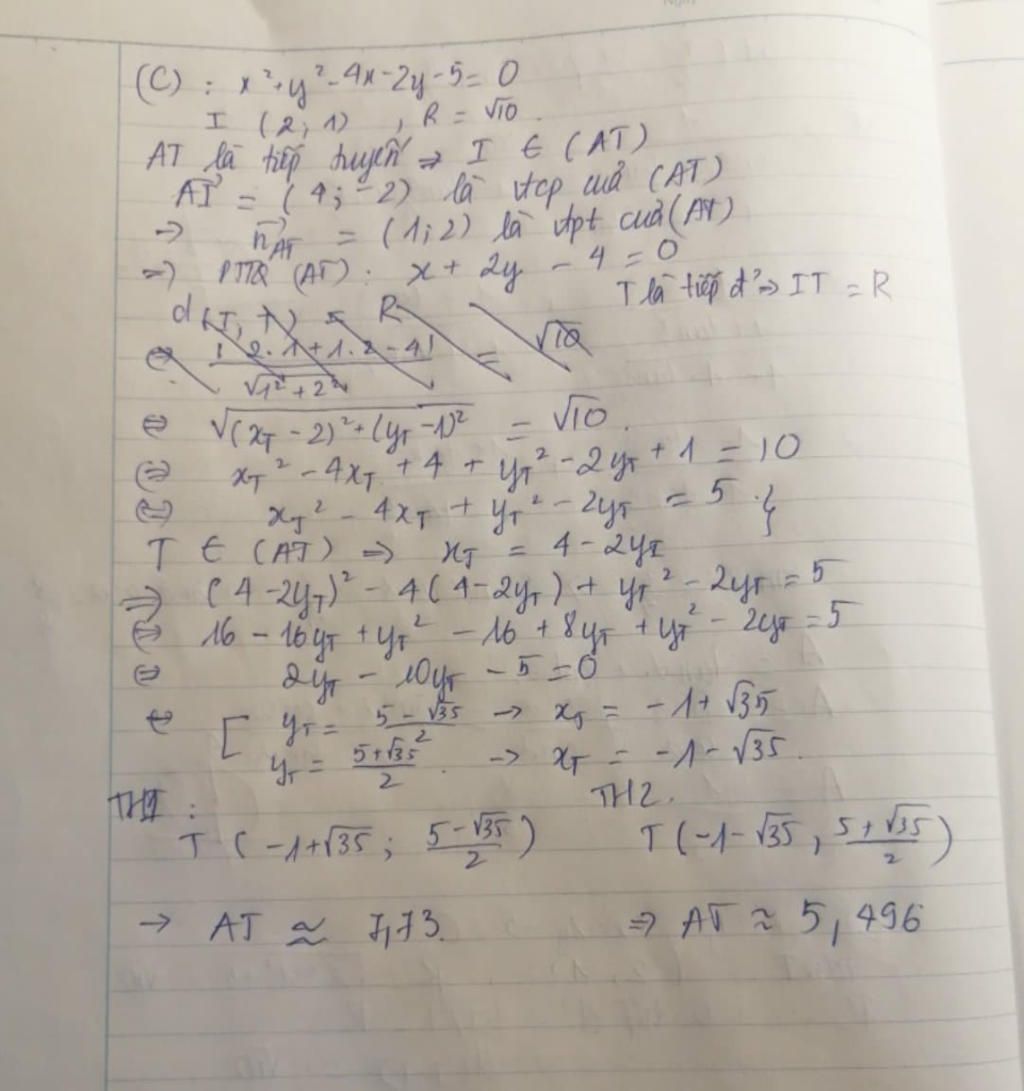 (C) : x² + y² - 4x - 2y - 5 = 0
I (2; 1) , R = √10.
AT là tiếp tuyến ⇒ I ∈ (AT)
AI⃗ = (4; -2) là vtcp của (AT)
→ n⃗_AT = (1; 2) là vtpt của (AT)
⇒ PTTQ (AT): x + 2y - 4 = 0
T là tiếp đ' ⇒ IT = R
d(I, T) = R
⇔ |2.1 + 1.2 - 4| / √(1² + 2²) = √10
⇔ √((x_T - 2)² + (y_T - 1)²) = √10.
⇔ x_T² - 4x_T + 4 + y_T² - 2y_T + 1 = 10
⇔ x_T² - 4x_T + y_T² - 2y_T = 5 }
T ∈ (AT) ⇒ x_T = 4 - 2y_T
⇒ (4 - 2y_T)² - 4(4 - 2y_T) + y_T² - 2y_T = 5
⇔ 16 - 16y_T + y_T² - 16 + 8y_T + y_T² - 2y_T = 5
⇔ 2y_T - 10y_T - 5 = 0
⇔ [ y_T = (5 - √35)/2 → x_T = -1 + √35
y_T = (5 + √35)/2 . → x_T = -1 - √35.
TH1 : TH2.
T (-1 + √35 ; (5 - √35)/2) T(-1 - √35 , (5 + √35)/2)
→ AT ≈ 7,73. ⇒ AT ≈ 5,496